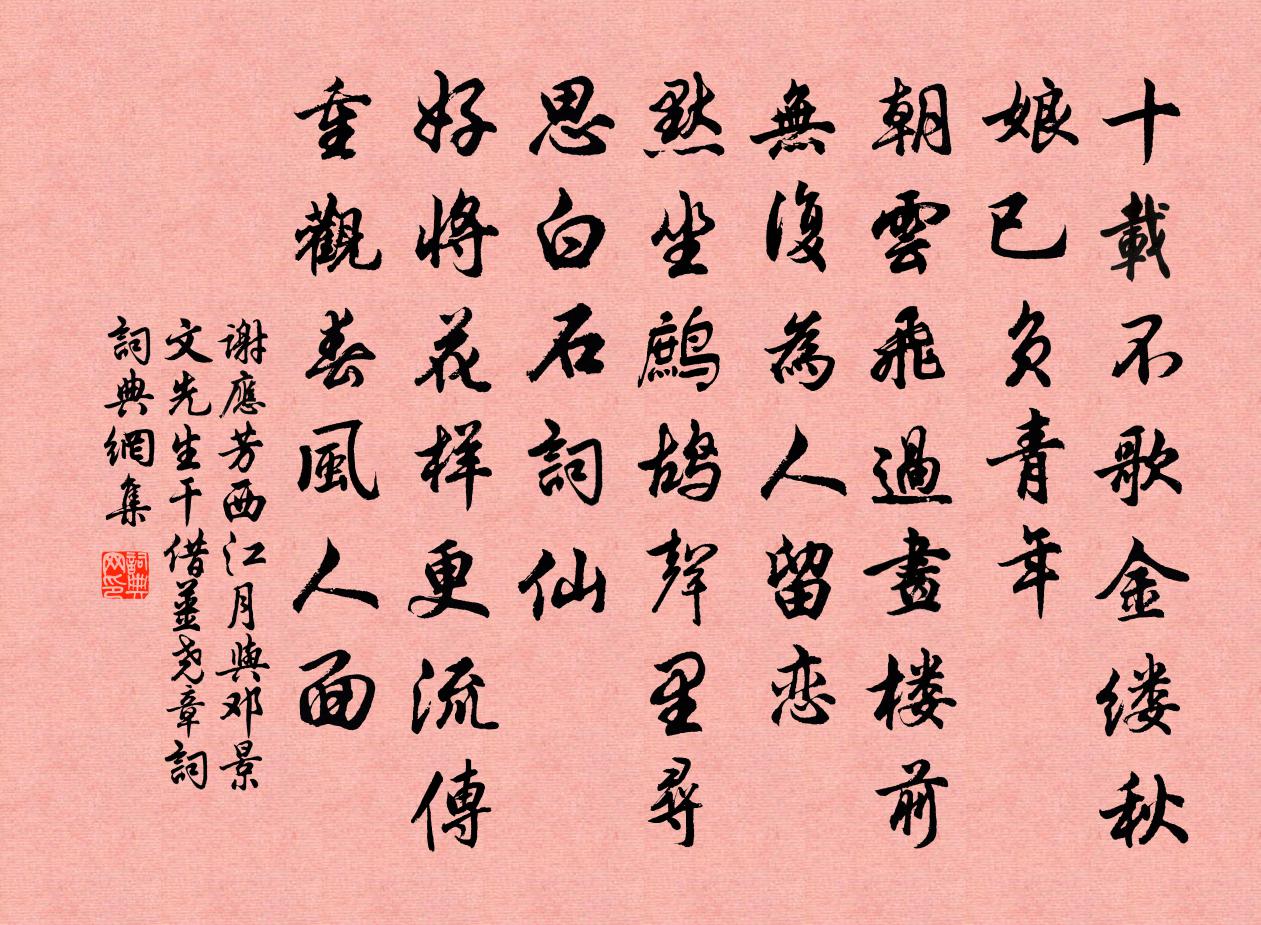 十載不歌金缕秋
娘已负青年
朝雲飛過畫楼前
無復為人留恋
默坐鷓鴣聲里尋
思白石詞仙
好將花样更流傳
重觀春風人面
谢應芳西江月與邓景
文先生干借薑尧章詞
詞典網集
詞典网印